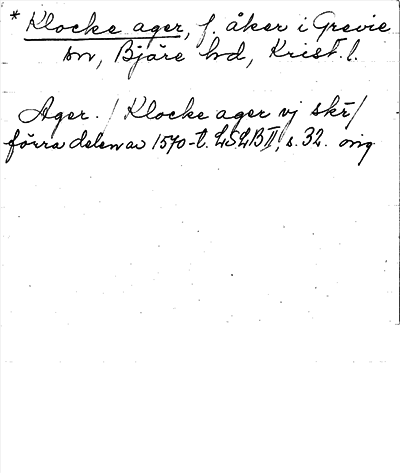 * Klocke ager, f. åker i Grevie
sn, Bjäre hd, Krist. l.
Ager. / Klocke ager vj skr/
förra delen av 1570-t. LSLB II, s. 32. orig